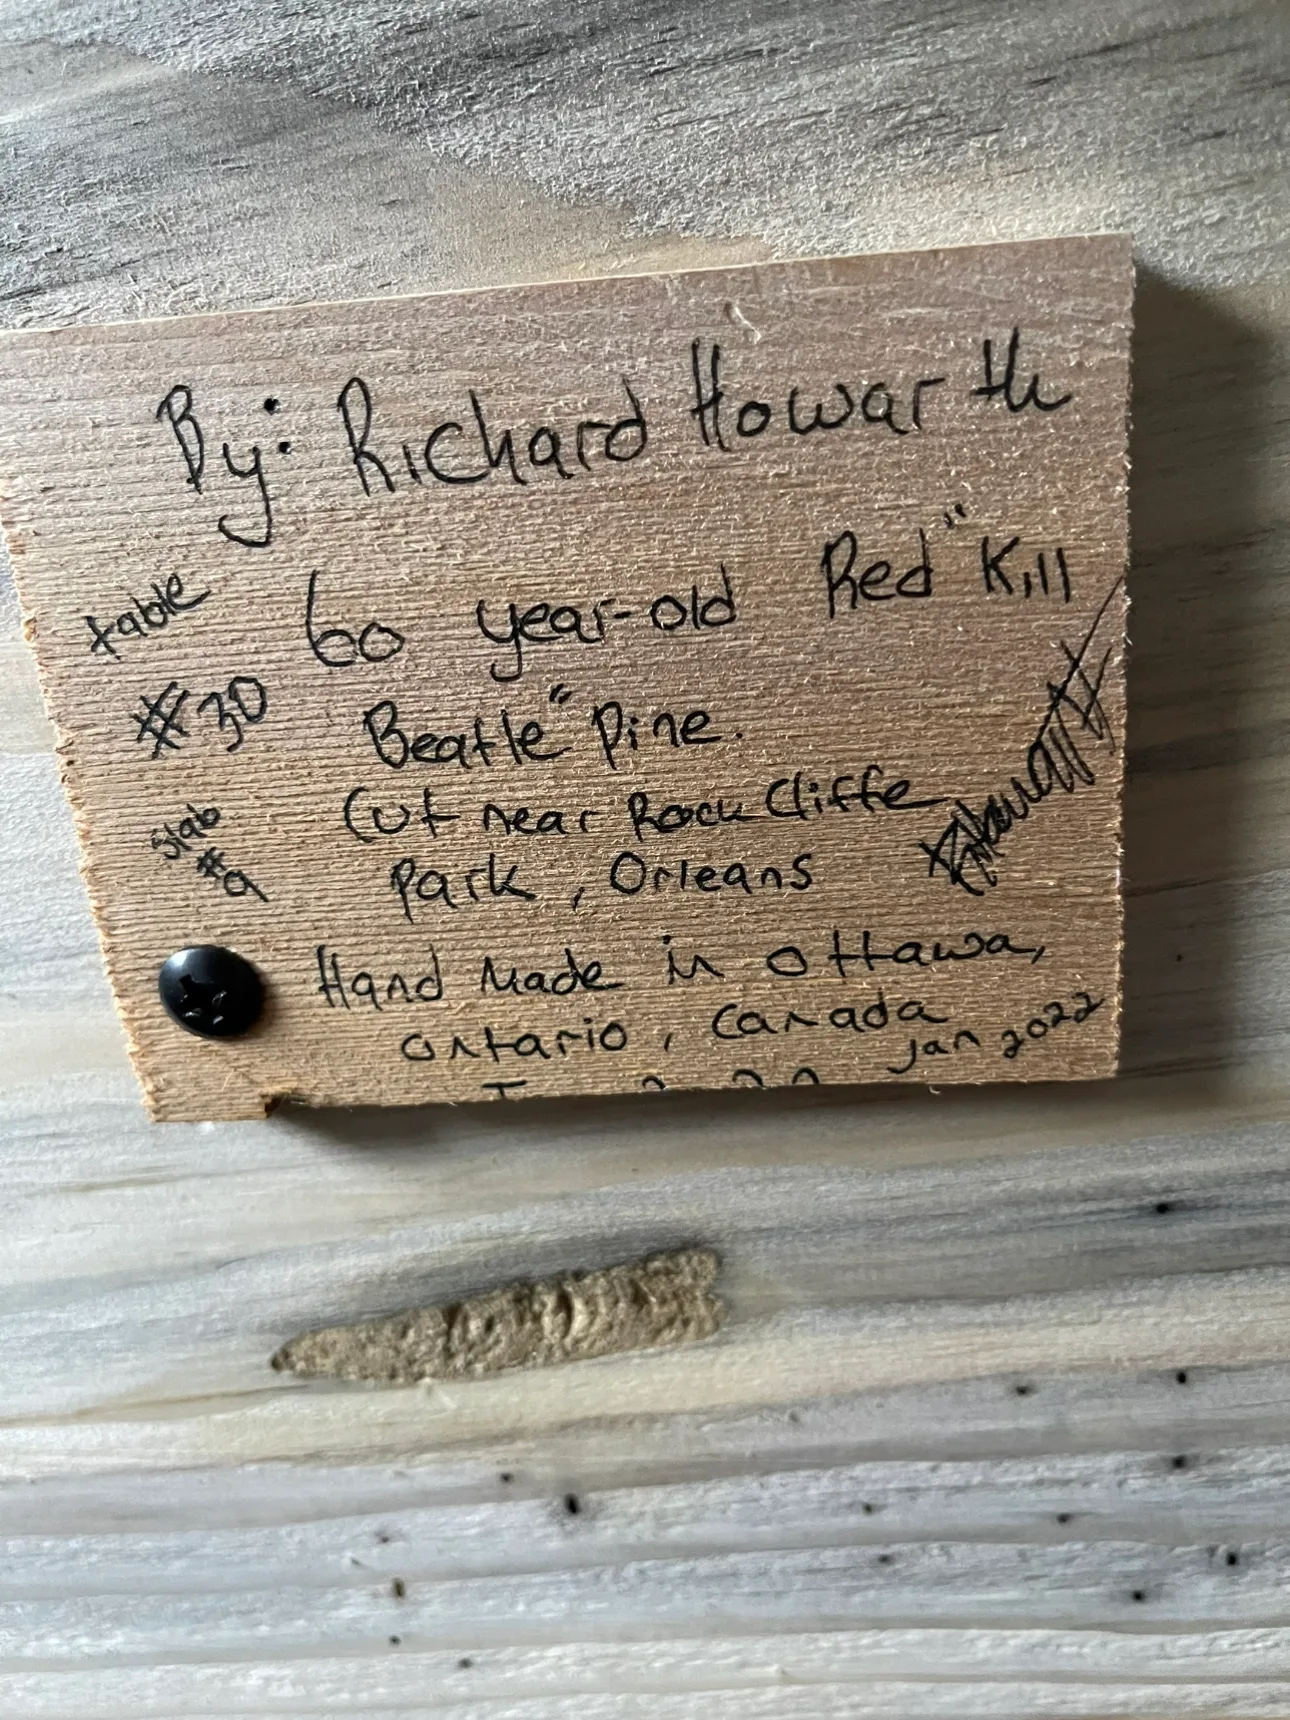 By: Richard Howarth
table
60 year-old Red "Kill
#30
Beatle" Pine.
Slab
#9
Cut near Rock Cliffe
Park, Orleans
Howarth
Hand Made in Ottawa,
Ontario, Canada
Jan 2022